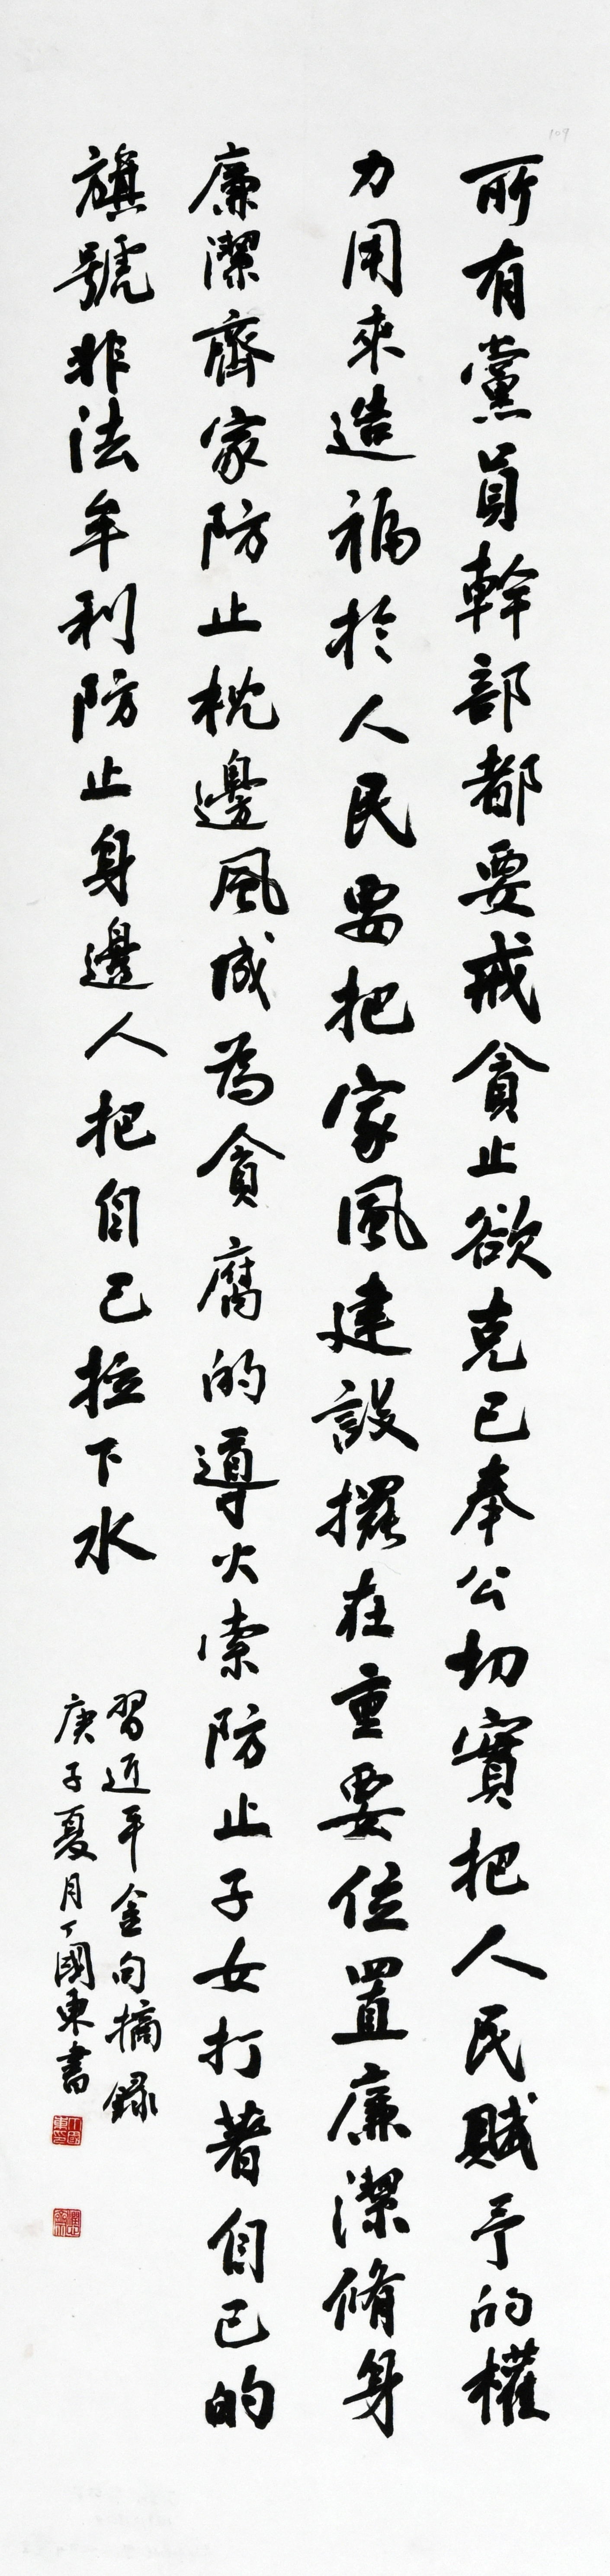 所有黨員幹部都要戒貪止欲克己奉公切實把人民賦予的權
力用來造福於人民要把家風建設擺在重要位置廉潔脩身
廉潔齊家防止枕邊風成為貪腐的導火索防止子女打著自己的
旗號非法牟利防止身邊人把自己拉下水
習近平金句摘錄
庚子夏月丁國東書
109